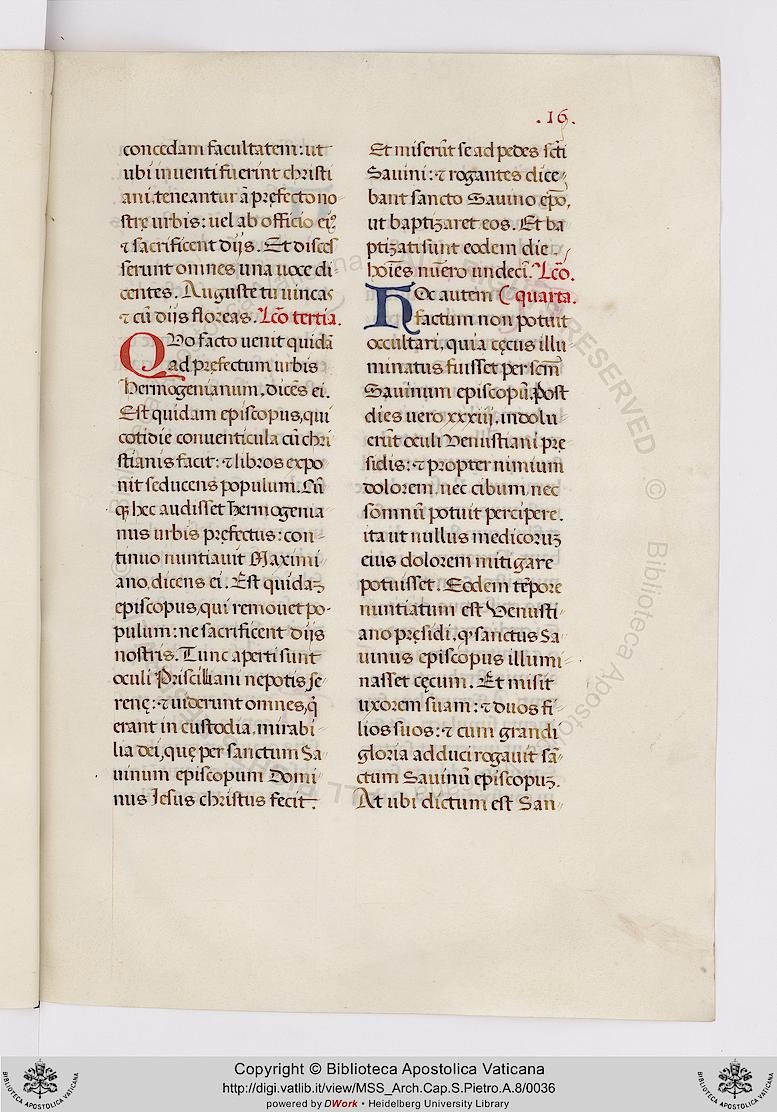 .16.
concedam facultatem: ut
ubi inuenti fuerint christi
ani, teneantur a᷑ pręfecto no
strę urbis: uel ab officio eiꝰ
⁊ sacrificent diis. Et disces
serunt omnes una uoce di-
centes. Auguste tu uincas
⁊ cū diis floreas. Lc̄o tertia.
QVo facto uenit quidā
ad pręfectum urbis
Hermogenianum, dicēs ei.
Est quidam episcopus, qui
cotidie conuenticula cū chri
stianis facit: ⁊ libros expo
nit seducens populum. Cū
hec audisset Hermogenia
nus urbis prefectus: con-
tinuo nuntiauit Maximi
ano, dicens ei. Est quidaꝫ
episcopus, qui remouet po-
pulum: ne sacrificent diis
nostris. Tunc aperti sunt
oculi Priscilliani nepotis se
renę: ⁊ uiderunt omnes, q̄
erant in custodia, mirabi
lia dei, quę per sanctum Sa
uinum episcopum Domi
nus Iesus christus fecit.
Et miserūt se ad pedes sc̄ti
Sauini: ⁊ rogantes dice
bant sancto Sauino ep̄o,
ut baptizaret eos. Et ba
ptizati sunt eodem die
hoīes nūero undecī. Lc̄o.
HOc autem quarta.
factum non potuit
occultari, quia cęcus illu
minatus fuisset per sc̄m
Sauinum episcopū. Post
dies uero xxxiii. indolu
erūt oculi Venustiani pre
sidis: ⁊ propter nimium
dolorem nec cibum nec
somnū potuit percipere.
ita ut nullus medicoruꝫ
eius dolorem mitigare
potuisset. Eodem tēpore
nuntiatum est Venusti
ano pręsidi, ꝙ sanctus Sa
uinus episcopus illumi
nasset cęcum. Et misit
uxorem suam: ⁊ duos fi
lios suos: ⁊ cum grandi
gloria adduci rogauit sā
ctum Sauinū episcopuꝫ.
At ubi dictum est San
Copyright © Biblioteca Apostolica Vaticana
http://digi.vatlib.it/view/MSS_Arch.Cap.S.Pietro.A.8/0036
powered by DWork • Heidelberg University Library